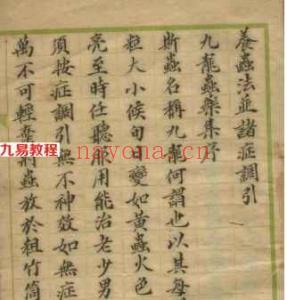 養蟲法並諸症調引
九龍蟲藥集序
斯蟲名稱九龍何謂也以其每
粒大小候旬日變如黃蟲火色
亮至時任聽服用能治老少男
須按症調引無不神效如無症
萬不可輕棄將蟲放於粗竹筒
九易教程
nayona.cn